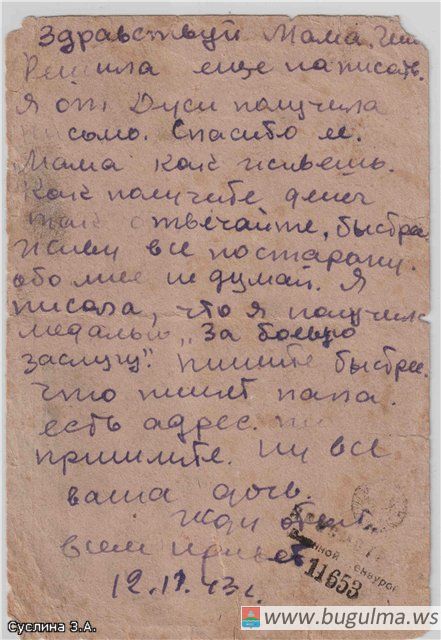 Здравствуй Мама.
Решила еще написать.
Я от Дуси получила
письмо. Спасибо ее.
Мама как живешь.
Как получите денег
так отвечайте, быстра
живу все постарому.
обо мне не думай. Я
писала, что я получила
медалью „За боевую
заслугу". пишите быстрее.
что пишет папа.
есть адрес.
пришлите. ну все
ваша дочь.
жду ответ
всем привет
12.11.43г.
Военной цензурой
11653
Суслина З.А.
www.bugulma.ws